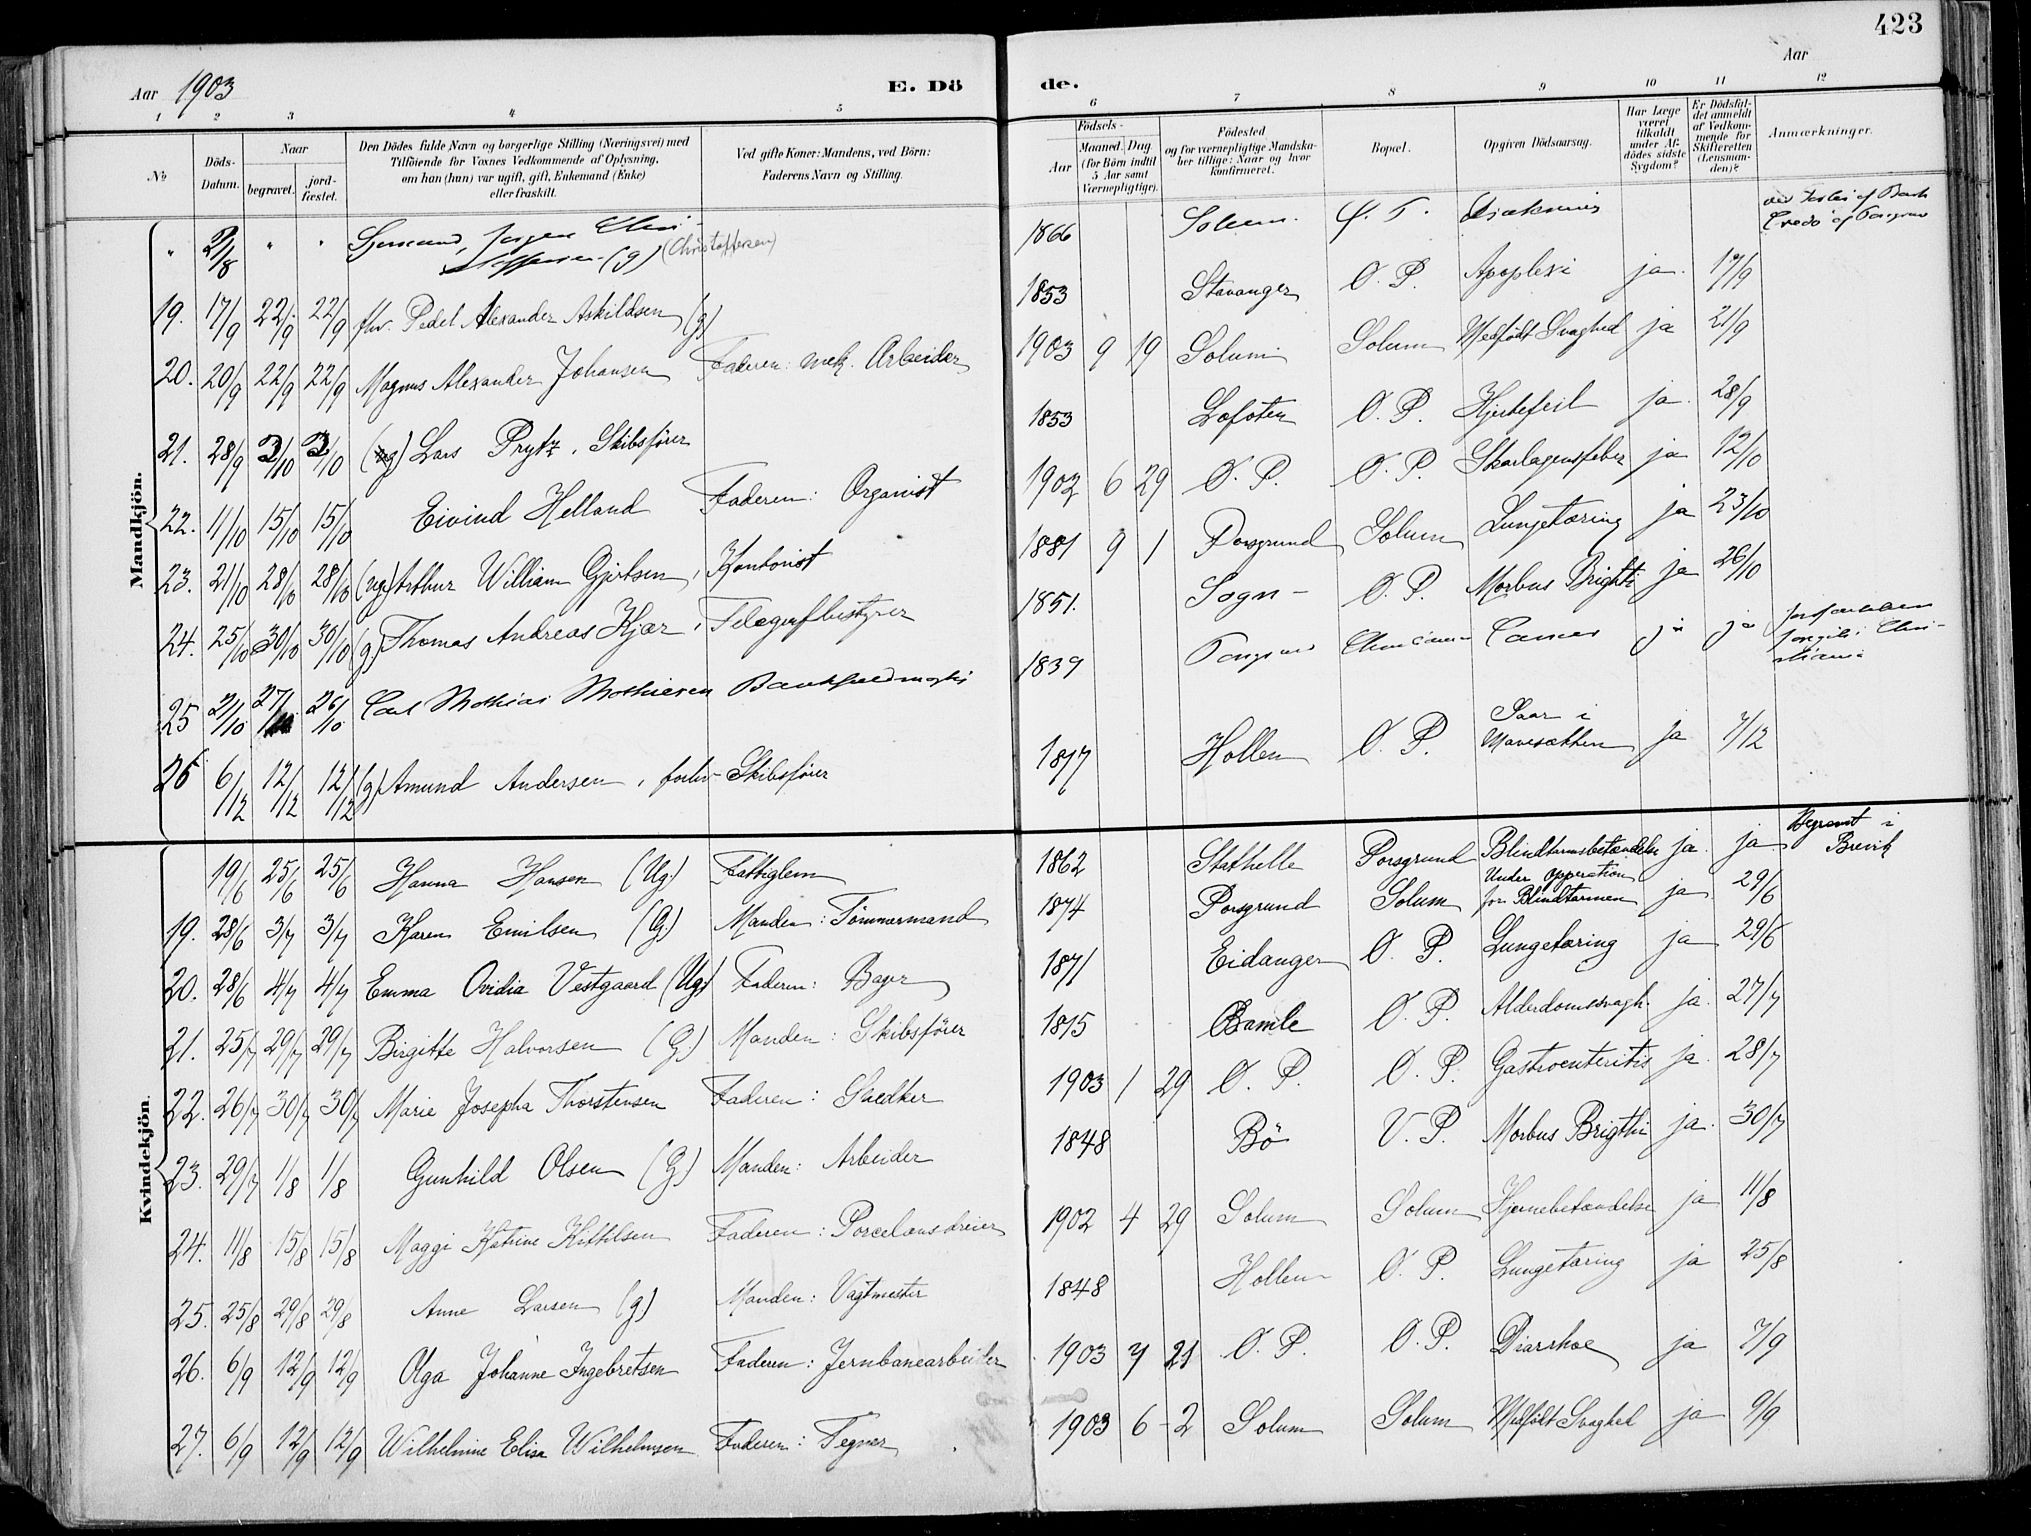 423
Aar 1903 E. Döde. Aar
1 2 3 4 5 6 7 8 9 10 11 12
No
Döds-Datum.
Naar begravet. jordfæstet.
Den Dödes fulde Navn og borgerlige Stilling (Næringsvei) med Tilföiende for Voxnes Vedkommende af Oplysning, om han (hun) var ugift, gift, Enkemand (Enke) eller fraskilt.
Ved gifte Koner: Mandens, ved Börn: Faderens Navn og Stilling.
Födsels-
Aar Maaned. Dag (for Börn indtil 5 Aar samt Værnepligtige).
Födested og for værnepligtige Mandskaber tillige: Naar og hvor konfirmeret.
Bopæl.
Opgiven Dödsaarsag.
Har Læge været tilkaldt under Afdödes sidste Sygdom?
Er Dödsfaldet anmeldt af Vedkommende for Skifteretten (Lensmanden)?
Anmærkninger.
Mandkjön.
" 2/8 " " Jørgen (g) (Christoffersen) 1866 Solum
19. 17/9 22/9 22/9 fhv. Pedel Alexander Askildsen (g) 1853 Stavanger Ø. P. Apoplexi ja 17/9
20. 20/9 22/9 22/9 Magnus Alexander Johansen Faderen: mek. Arbeider 1903 9 19 Solum Solum Medfødt Svaghed ja 21/9
21. 28/9 3/10 3/10 (g) Lars Prytz, Skibsfører 1853 Lofoten Ø. P. Hjertefeil ja 28/9
22. 11/10 15/10 15/10 Eivind Helland Faderen: Organist 1902 6 29 Ø. P. Ø. P. Skarlagensfeber ja 12/10
23. 21/10 28/10 28/10 (ug) Arthur William Gjertsen, Kontorist 1881 9 1 Porsgrund Solum Lungetæring ja 23/10
24. 25/10 30/10 30/10 (g) Thomas Andreas Kjær, Telegrafbestyrer 1851. Sogn Ø. P. Morbus Brighti ja 26/10
25 21/10 27/10 26/10 Carl Mathias Mathiesen 1839 Cancer ja ja
26 6/12 12/12 12/12 (g) Amund Andersen, forhv. Skibsfører 1817 Hollen Ø. P. Saar i Mavesækken ja 7/12
Kvindekjön.
19/6 25/6 25/6 Hanna Hansen (Ug.) Fattiglem 1862 Stathelle Porsgrund Blindtarmsbetændelse ja ja Begravet i Brevik
19. 28/6 3/7 3/7 Karen Emilsen (G.) Manden: Tømmermand 1874 Porsgrund Solum Under Opperation for Blindtarmen ja 29/6
20. 28/6 4/7 4/7 Emma Ovidia Vestgaard (Ug.) Faderen: Bager 1871 Eidanger Ø. P. Lungetæring ja 29/6
21. 25/7 29/7 29/7 Birgitte Halvorsen (G.) Manden: Skibsfører 1815 Bamle Ø. P. Alderdomssvagh. ja 27/7
22. 26/7 30/7 30/7 Marie Josepha Thorstensen Faderen: Snedker 1903 1 29 Ø. P. Ø. P. Gastroenteritis ja 28/7
23. 29/7 1/8 1/8 Gunhild Olsen (G.) Manden: Arbeider 1848 Bö V. P. Morbus Brigthi ja 30/7
24. 11/8 15/8 15/8 Maggi Katrine Kittilsen Faderen: Porcelænsdreier 1902 4 29 Solum Solum Hjernebetændelse ja 11/8
25. 25/8 29/8 29/8 Anne Larsen (g) Manden: Vagtmester 1848 Hollen Ø. P. Lungetæring ja 25/8
26. 6/9 12/9 12/9 Olga Johanne Ingebretsen Faderen: Jernbanearbeider 1903 7 21 Ø. P. Ø. P. Diarrhoe ja 7/9
27. 6/9 12/9 12/9 Wilhelmine Elise Wilhelmsen Faderen: Tegner 1903 6 2 Solum Solum Medfødt Svaghed ja 9/9